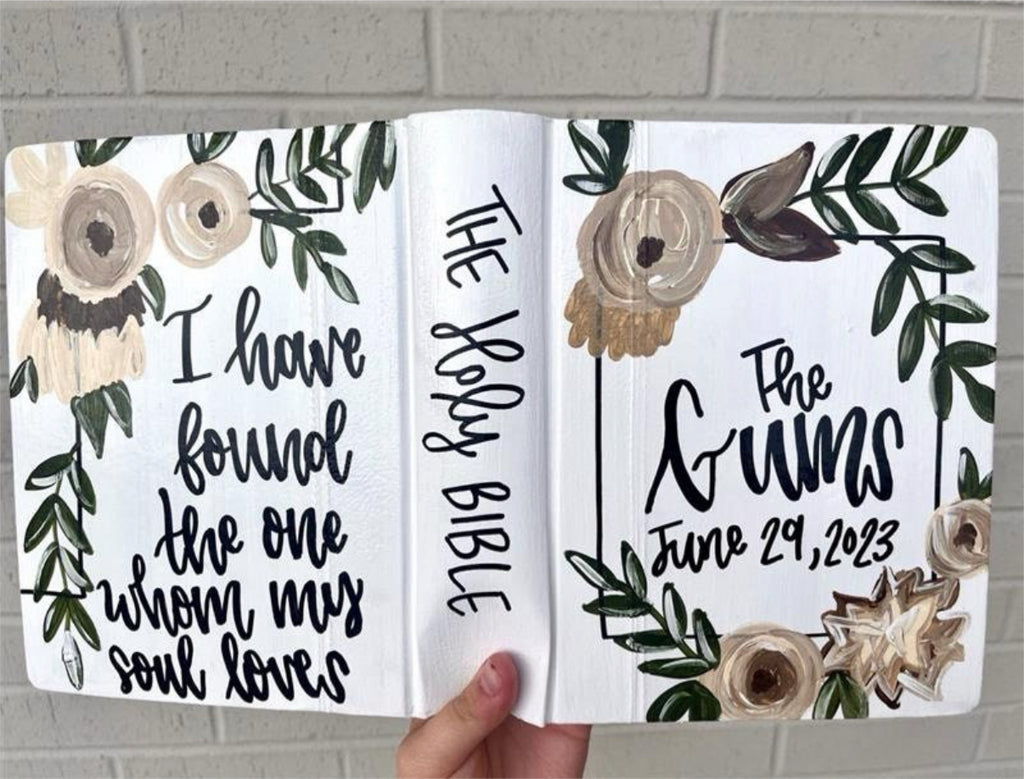 I have
found
the one
whom my
soul loves
THE Holy BIBLE
The
Gums
June 29, 2023